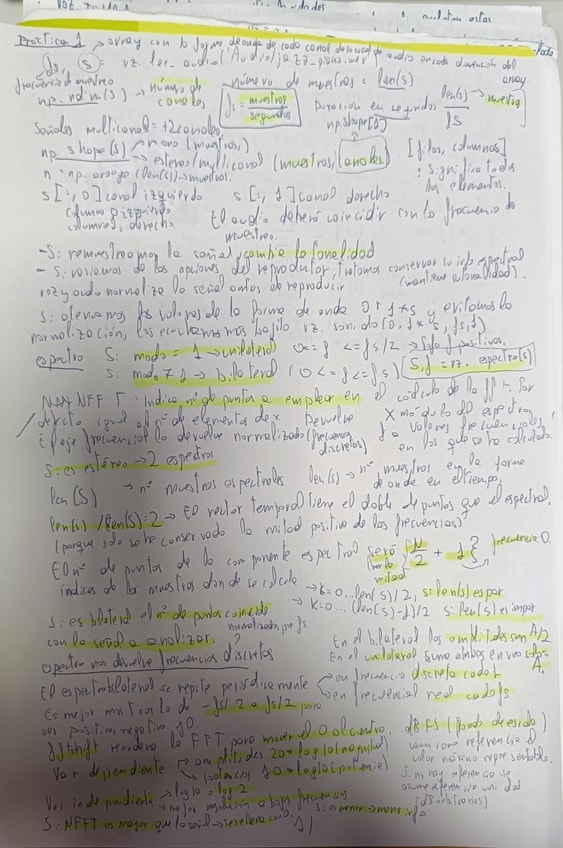 Práctica 1 → array con la forma de onda de cada canal
fs, s: vz. leer_audio(
frecuencia de muestreo
número de muestras = len(s)
np.ndim(s) → número de canales
fs = muestras / segundos
Duración en segundos len(s) → muestras / fs
Señales multicanal = +2 canales.
np.shape(s) → mono (muestras,)
→ estéreo/multicanal (muestras, canales)
[filas, columnas]
: significa todos los elementos.
n = np.arange(len(s)) → muestras.
s[:,0] canal izquierdo s[:,1] canal derecho
columna 0, izquierda
columna 1, derecha
El audio deberá coincidir con la frecuencia de muestreo.
- Si remuestreamos la señal, cambia la tonalidad
- Si variamos de las opciones del reproductor, intentamos conservar su info espectral
(mantiene su tonalidad).
vz.audio normaliza la señal antes de reproducir
Si elevamos los valores de la forma de onda 0'1*s y evitamos la
normalización, los escuchamos bajito
espectro: Si modo = 1 → unilateral 0<=f<=fs/2 → Solo f positivas.
Si modo ≠ 1 → bilateral (0<=f<=fs) S,f = vz.espectro(s)
NFFT: indica nº de puntos a emplear en el cálculo de la fft. Por
defecto igual al nº de elementos de x. Devuelve X módulo del espectro
El eje frecuencial lo devuelve normalizado (frecuencias discretas)
f → valores frecuenciales en los que se ha calculado.
Si es estéreo → 2 espectros
len(S) → nº muestras espectrales len(s) → nº muestras en la forma de onda en el tiempo.
len(s)/len(S) = 2 → El vector temporal tiene el doble de puntos que el espectral.
(porque solo se ha conservado la mitad positiva de las frecuencias)
El nº de puntos de la componente espectral será N/2 + 1 } frecuencia 0.
mitad
índices de las muestras donde se calcula → k=0...len(s)/2, si len(s) es par
→ k=0...(len(s)-1)/2 si len(s) es impar
Si es bilateral el nº de puntos coincide
con la señal a analizar.
normalizadas por fs.
En el bilateral las amplitudes son A/2
En el unilateral suma ambas en una sola A.
espectro nos devuelve frecuencias discretas
El espectro bilateral se repite periódicamente → en frecuencia discreta cada 1
→ en frecuencial real cada fs
Es mejor mostrarlo de -fs/2 a fs/2 para
ver positivo, negativo y 0.
fftshift reordena la FFT para mover el 0 al centro.
dBFS (fondo de escala)
usan como referencia el
valor máximo representable.
Var dependiente → amplitudes 20*log10(magnitud)
→ potencias 10*log10(potencia)
Si no hay referencia se
asume referencia unidad
(dB arbitrarios)
Var. independiente → log10 o log2
→ mejor resolución a bajas frecuencias
Si NFFT es mayor que la señal → se rellena con 0.
Si es menor → menos info